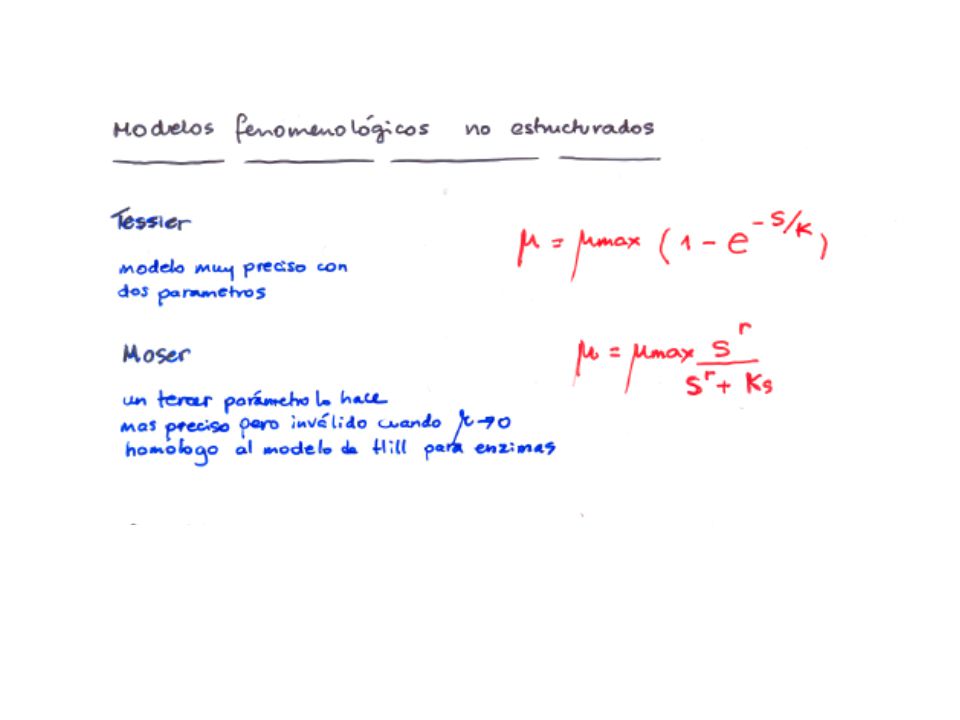 Modelos fenomenológicos no estructurados
Tessier
μ = μmax (1 - e^-S/K)
modelo muy preciso con
dos parametros
Moser
μ = μmax S^r / S^r + Ks
un tercer parámetro lo hace
mas preciso pero inválido cuando μ→0
homologo al modelo de Hill para enzimas